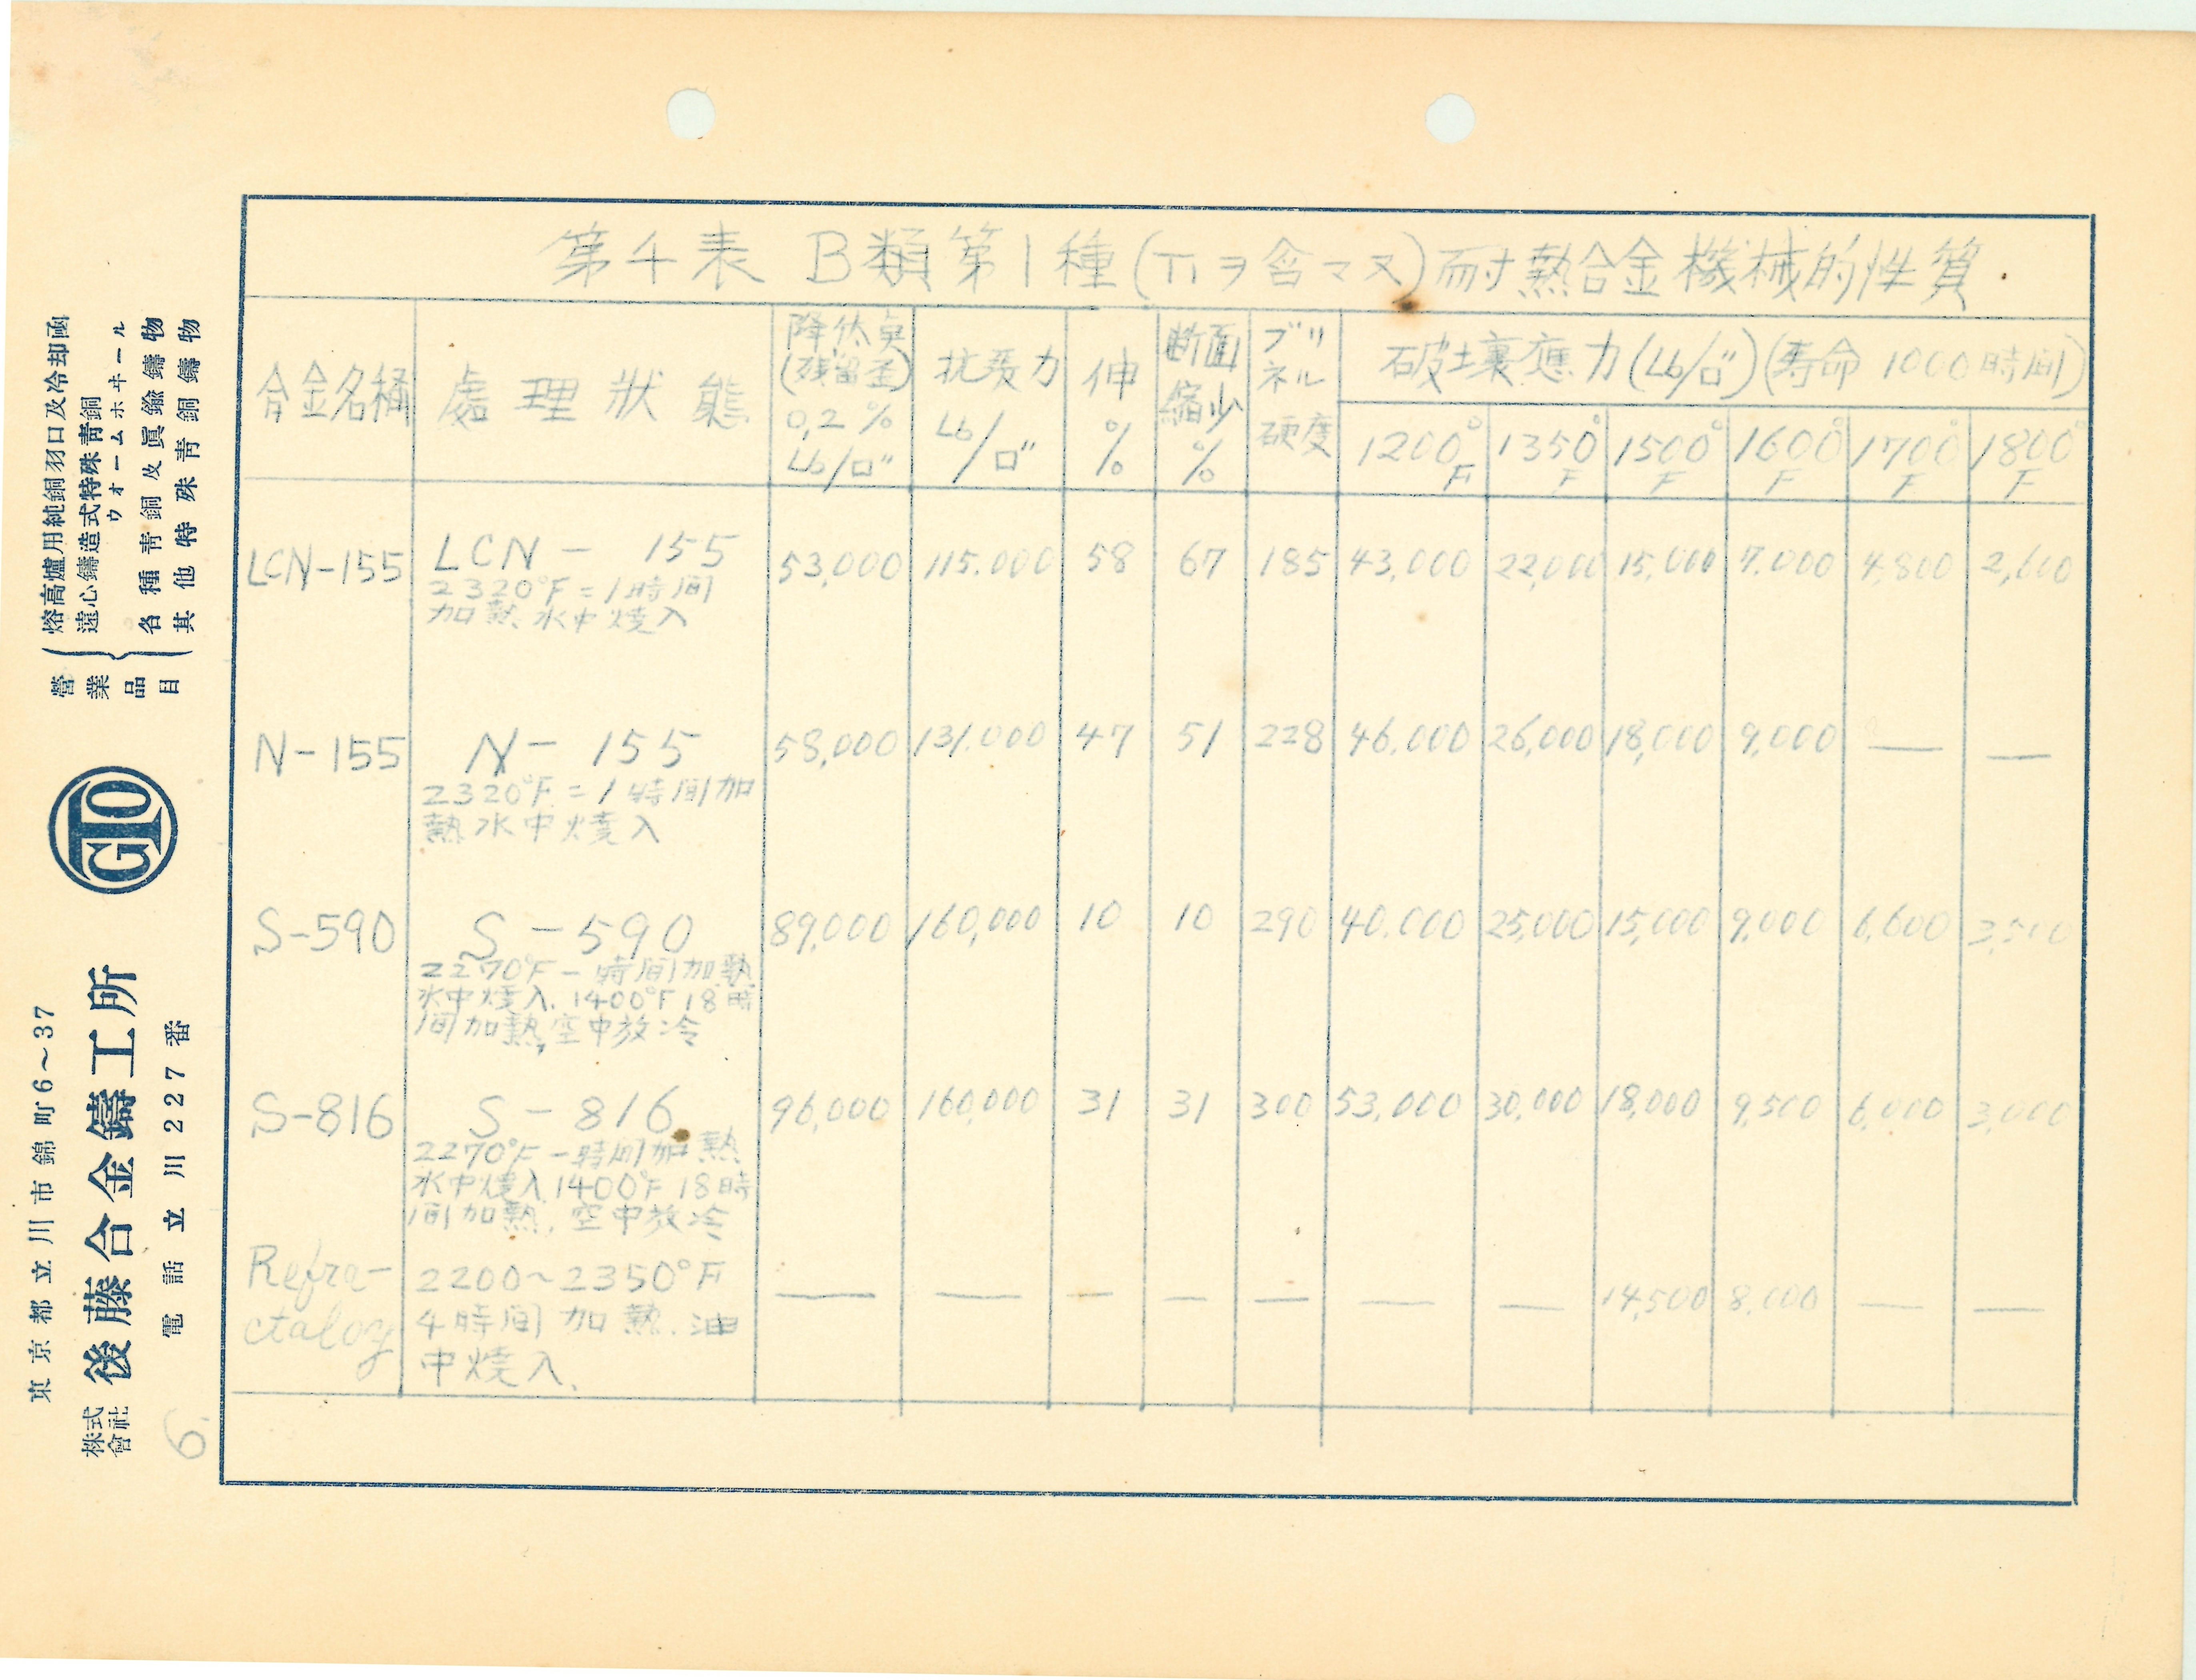 第4表 B類第1種(Tiヲ含マヌ)耐熱合金機械的性質
合金名稱
處理狀態
降伏点
(残留歪)
0,2%
Lb/□"
抗張力
Lb/□"
伸
%
断面
縮少
%
ブリ
ネル
硬度
破壊應力(Lb/□")(寿命 1000時間)
1200°F 1350°F 1500°F 1600°F 1700°F 1800°F
LCN-155 LCN- 155 53,000 115.000 58 67 185 43,000 22,000 15,000 7.000 4,800 2,600
2320°F=1時間
加熱水中焼入
N-155 N- 155 58,000 131.000 47 51 228 46.000 26,000 18,000 9,000 — —
2320°F=1時間加
熱水中焼入
S-590 S-590 89,000 160,000 10 10 290 40.000 25,000 15,000 9,000 6,600 3,500
2270°F一時間加熱
水中焼入.1400°F18時
間加熱,空中放冷
S-816 S-816 96,000 160,000 31 31 300 53,000 30,000 18,000 9,500 6,000 3,000
2270°F一時間加熱
水中焼入1400°F18時
間加熱,空中放冷
Refra-
ctaloy
2200~2350°F
4時間加熱.油
中焼入.
— — — — — — — 14,500 8,000 — —
營業品目
熔高爐用純銅羽口及冷却函
遠心鑄造式特殊靑銅
ウォームホヰール
各種靑銅及眞鍮鑄物
其他特殊靑銅鑄物
GTO
東京都立川市錦町6~37
株式會社 後藤合金鑄工所
電話立川227番
6.